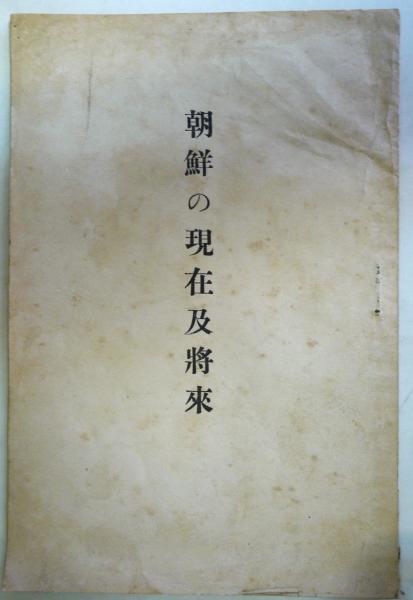 朝鮮の現在及將來